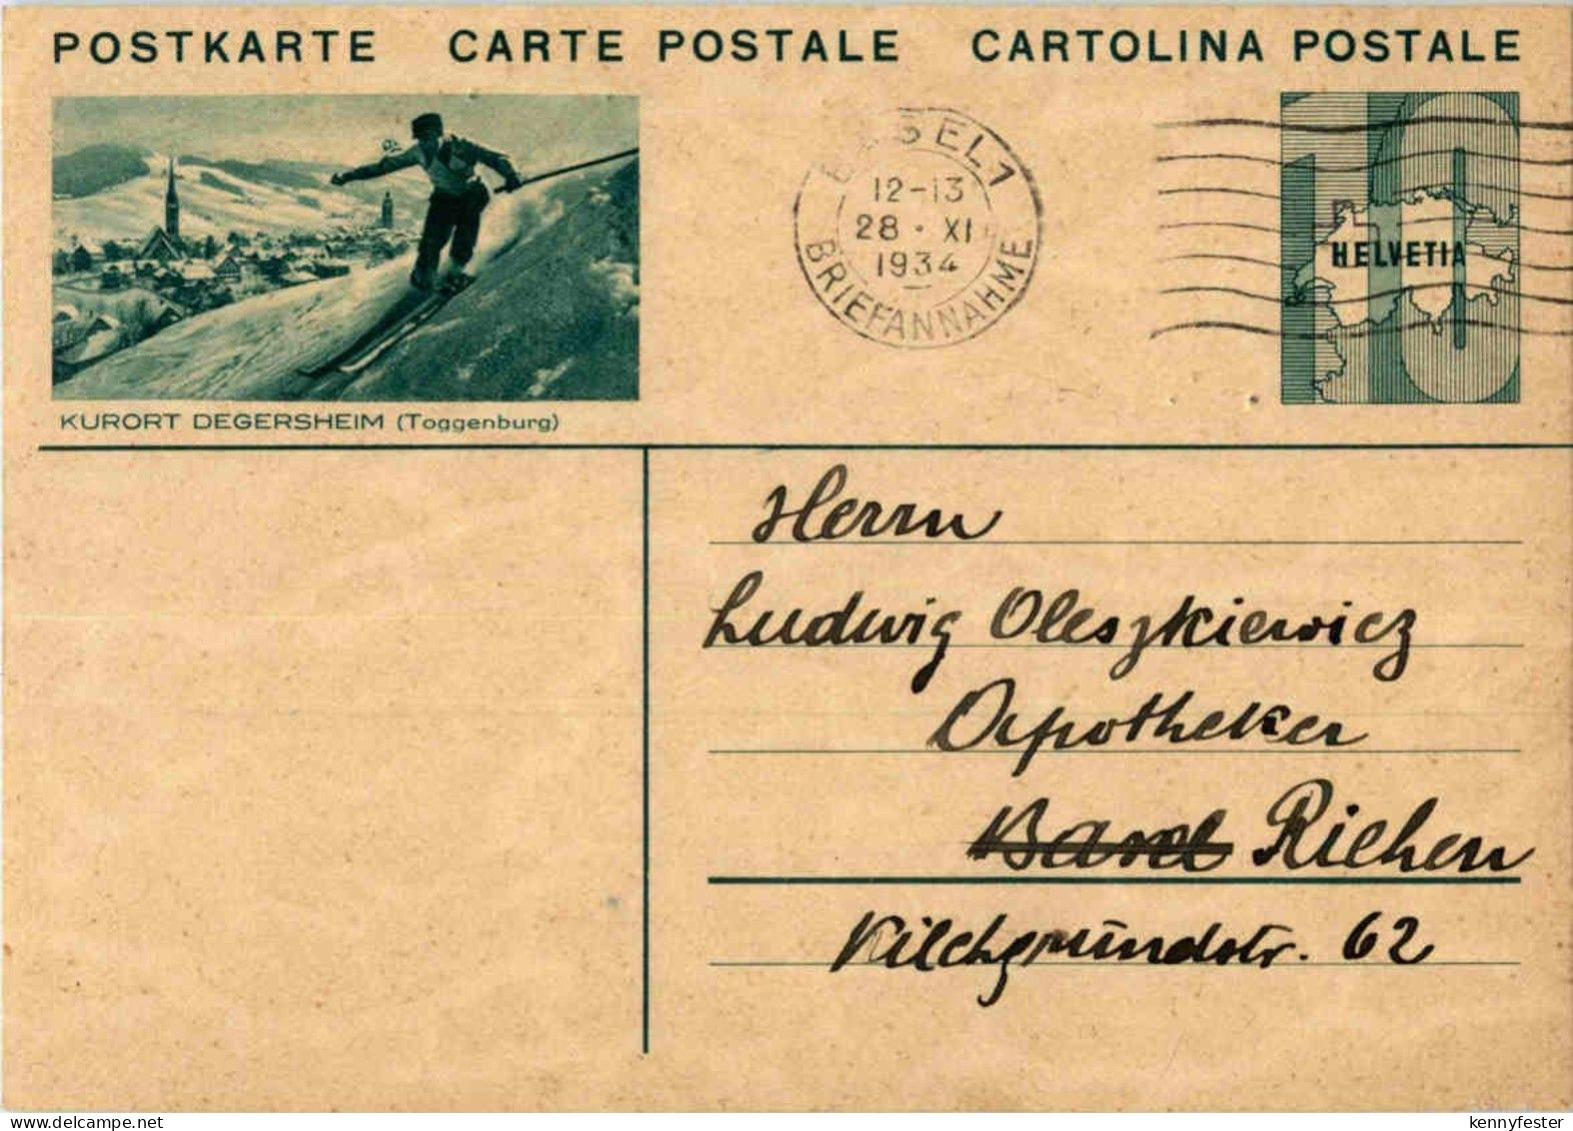 POSTKARTE CARTE POSTALE CARTOLINA POSTALE
BASEL 1
12-13
28 · XI
1934
BRIEFANNAHME
10
HELVETIA
KURORT DEGERSHEIM (Toggenburg)
Herrn
Ludwig Oleszkiewicz
Apotheker
Basel Riehen
Kilchgrundstr. 62
kennyfester